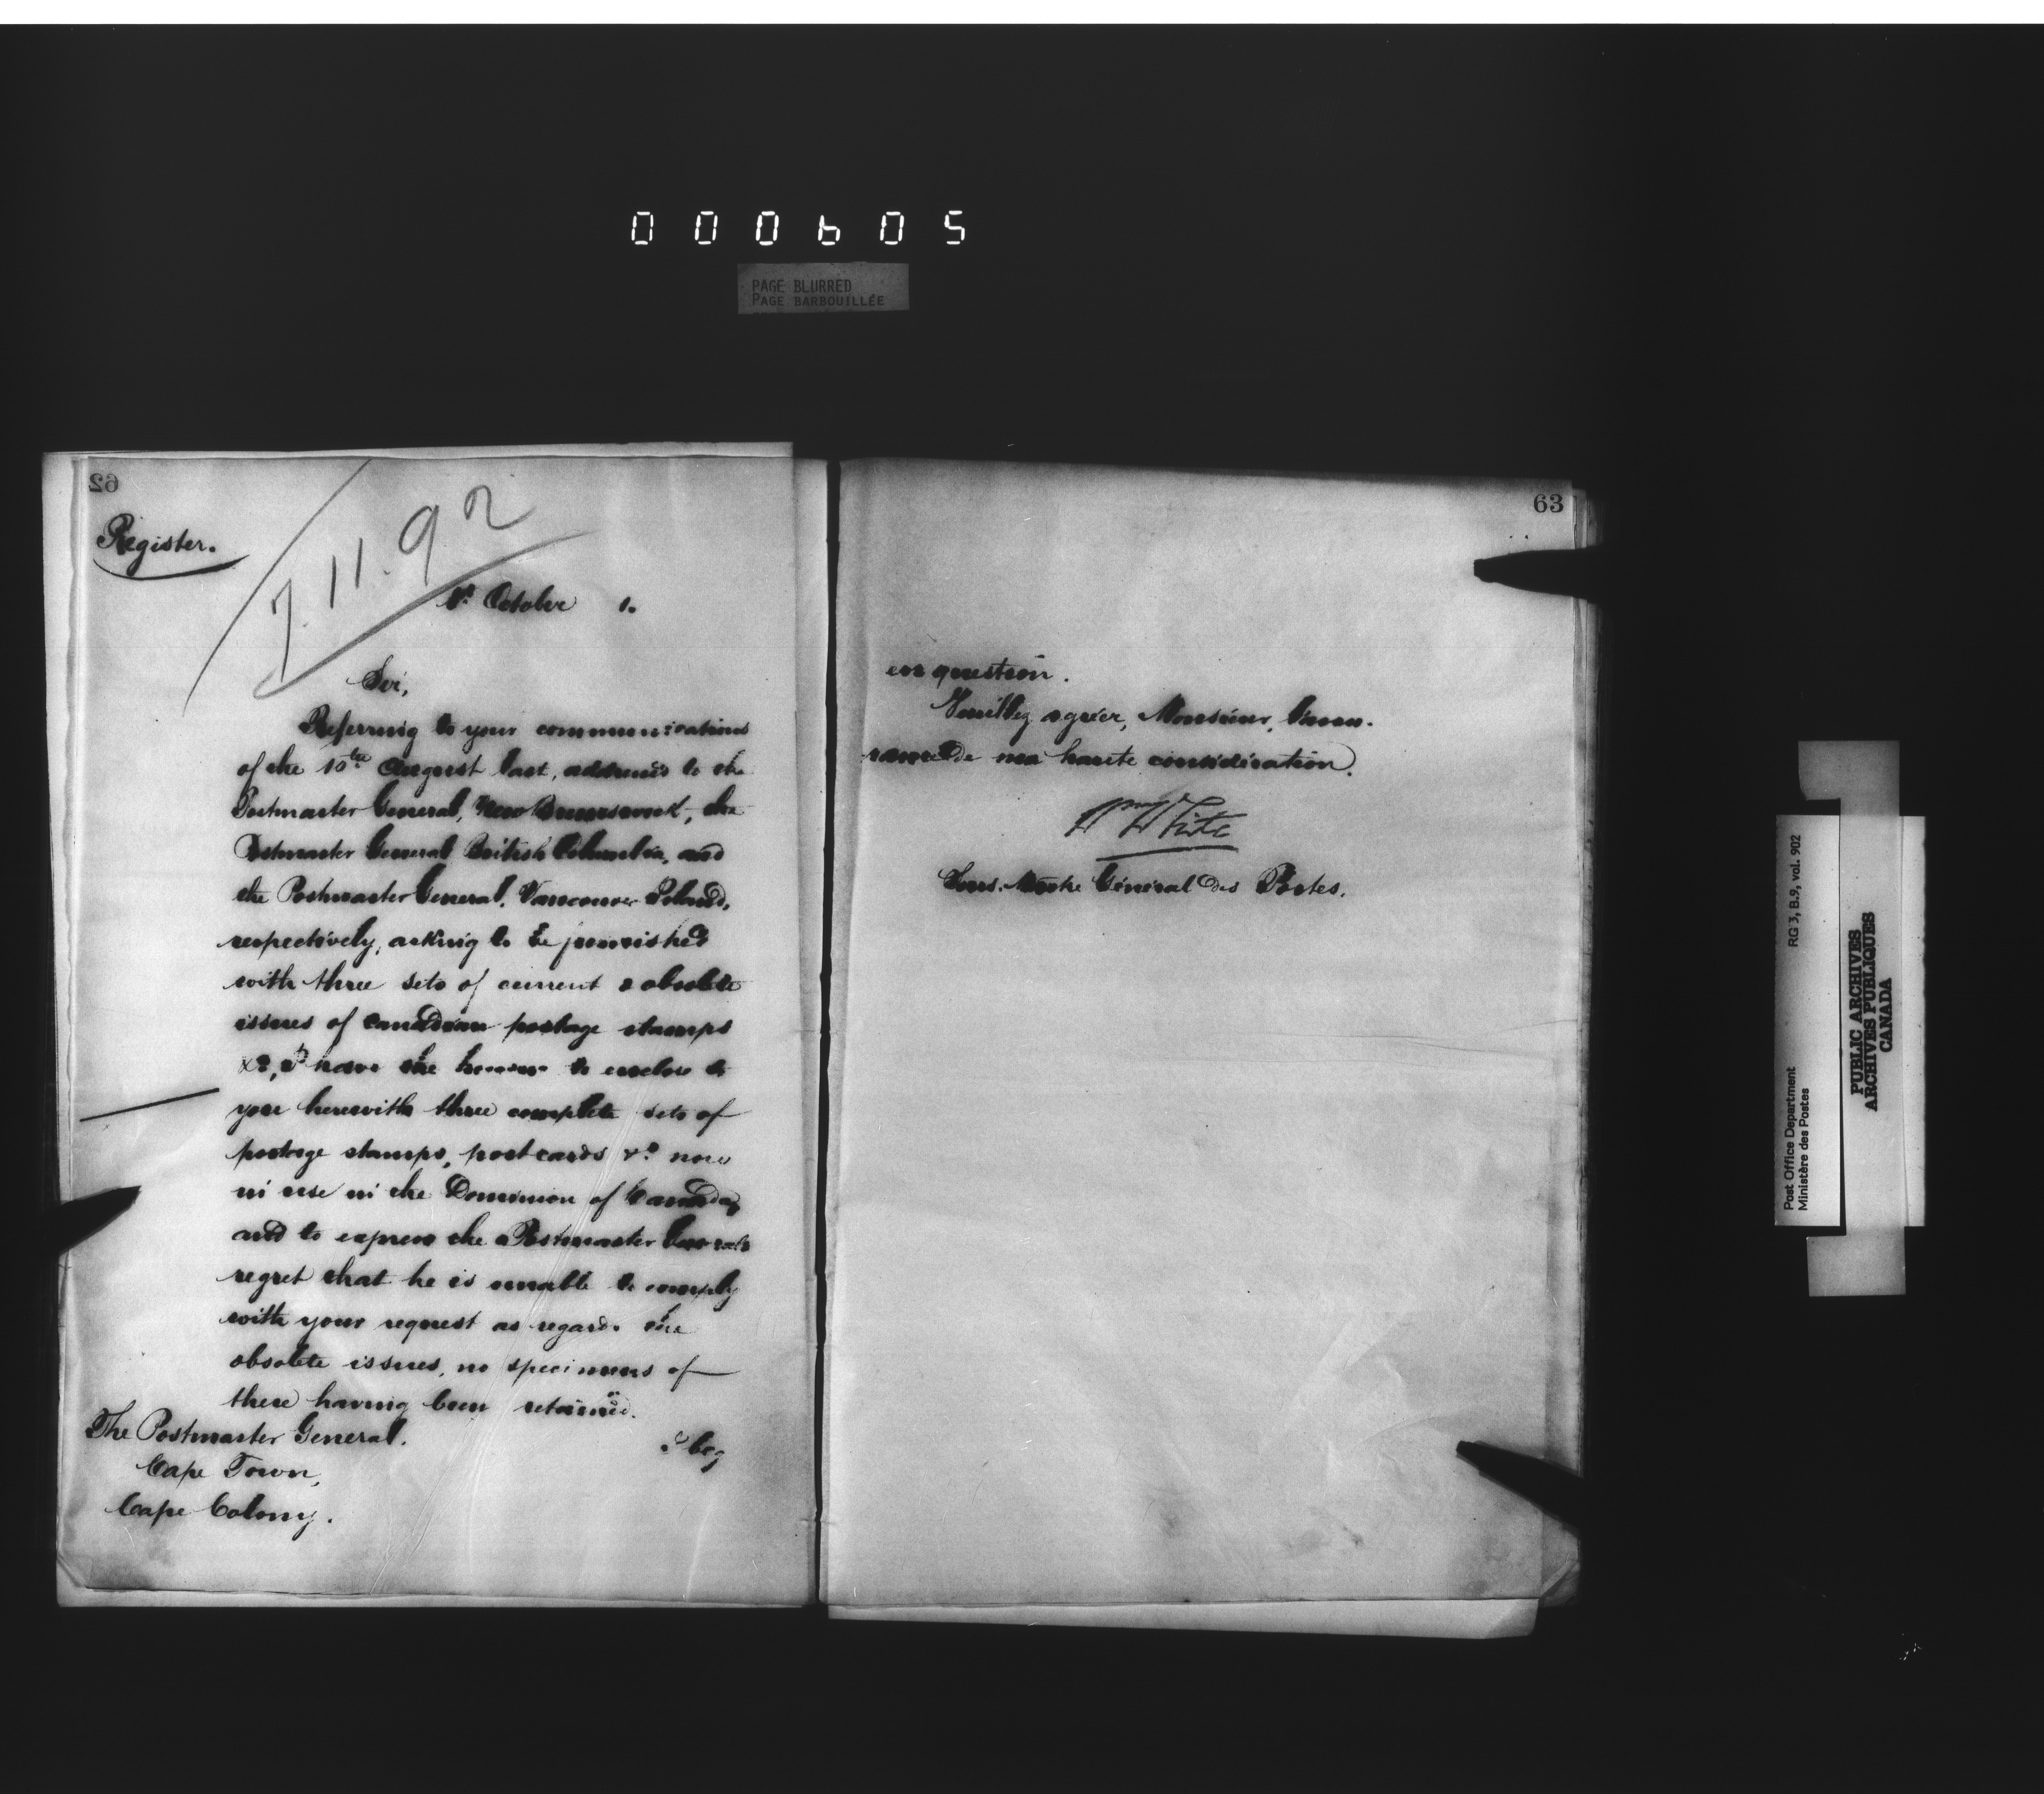 000605
PAGE BLURRED
PAGE BARBOUILLÉE
62
Register.
7.11.92
1st October 1.
Sir,
Referring to your communications
of the 10th August last, addressed to the
Postmaster General, New Brunswick, the
Postmaster General British Columbia, and
the Postmaster General, Vancouver Island,
respectively, asking to be furnished
with three sets of current & obsolete
issues of Canadian postage stamps
&c, I have the honour to enclose to
you herewith three complete sets of
postage stamps, post cards &c now
in use in the Dominion of Canada,
and to express the Postmaster General's
regret that he is unable to comply
with your request as regards the
obsolete issues, no specimens of
these having been retained.
I beg
The Postmaster General.
Cape Town,
Cape Colony.
63
en question.
Veuillez agréer, Monsieur, l'assu-
rance de ma haute considération.
Wm White
Sous-Maître Général des Postes.
Post Office Department
Ministère des Postes
RG 3, B.9, vol. 902
PUBLIC ARCHIVES
ARCHIVES PUBLIQUES
CANADA